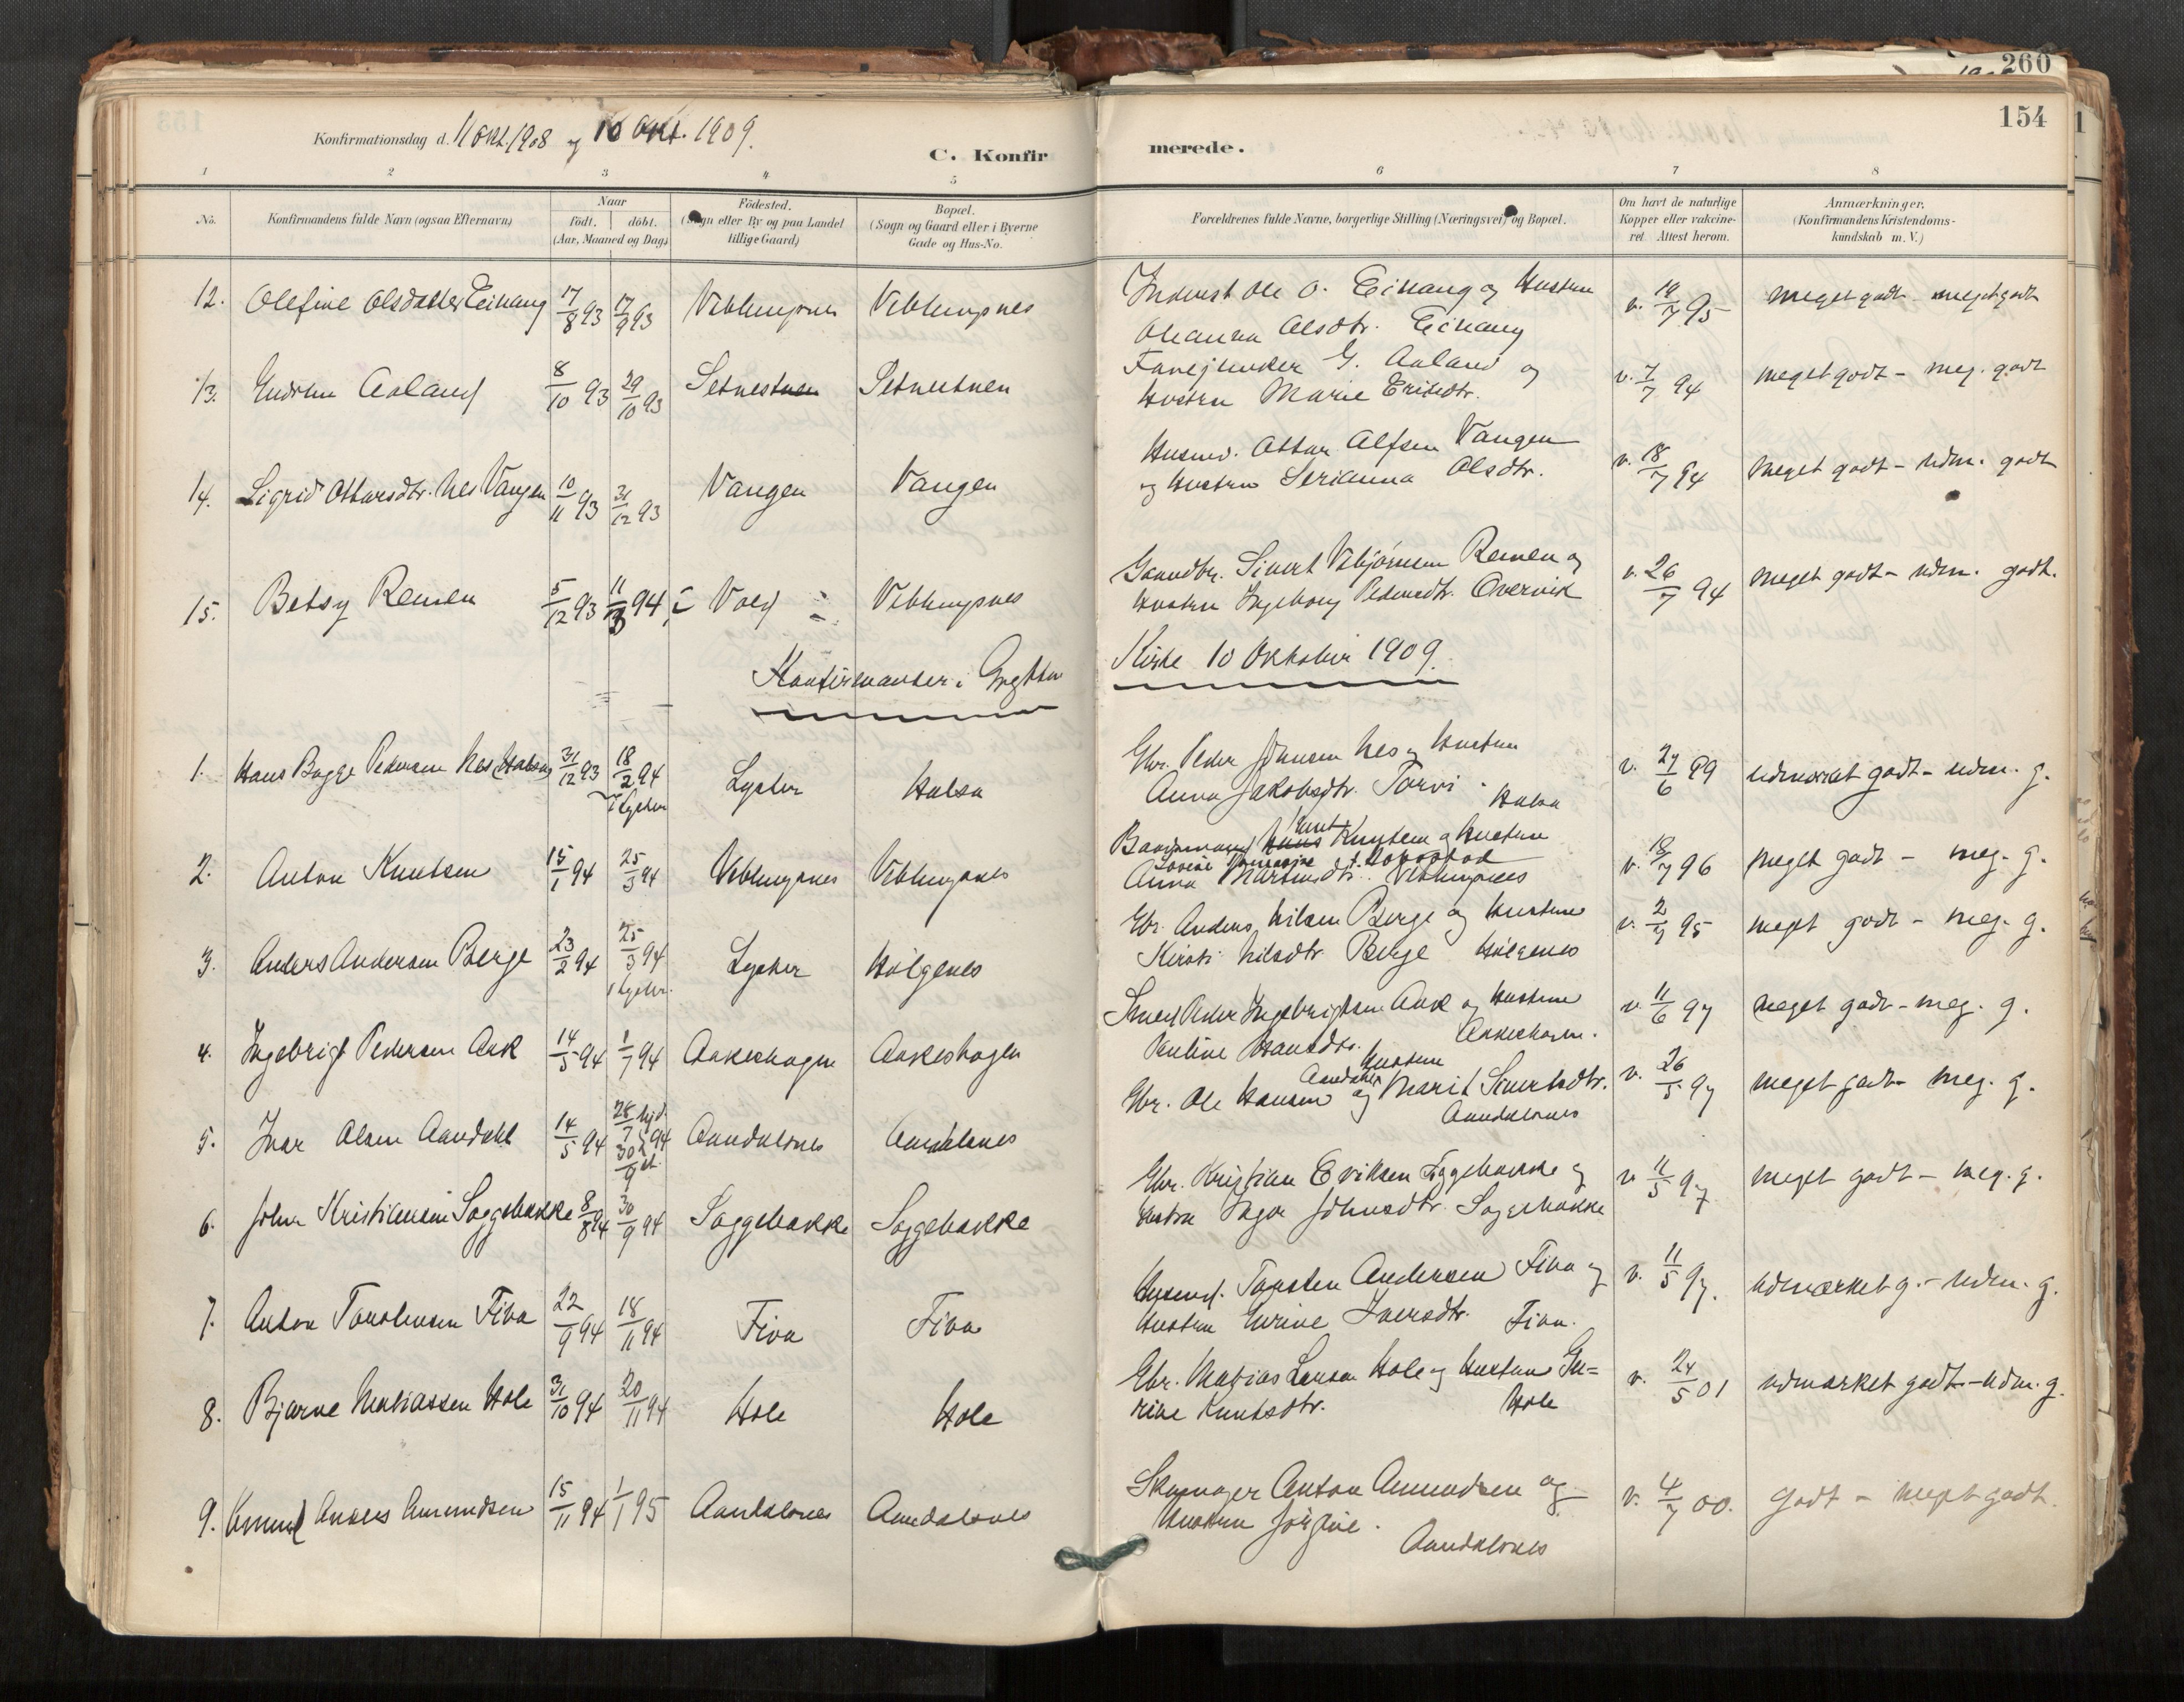 260
154
Konfirmationsdag d. 11 Okt. 1908 og 10 Okt. 1909.
C. Konfirmerede.
1 2 3 4 5 6 7 8
No.
Konfirmandens fulde Navn (ogsaa Efternavn)
Naar
födt. döbt.
(Aar, Maaned og Dag)
Födested.
(Sogn eller By og paa Landet
tillige Gaard)
Bopæl.
(Sogn og Gaard eller i Byerne
Gade og Hus-No.
Forældrenes fulde Navne, borgerlige Stilling (Næringsvei) og Bopæl.
Om havt de naturlige
Kopper eller vakcine-
ret Attest herom.
Anmærkninger,
(Konfirmandens Kristendoms-
kundskab m. V.)
12. Olefine Olsdatter Eihang 17/8 93 17/9 93 Veblungsnes Veblungsnes
Inderst Ole O. Eihang og Hustru
Oleanna Olsdtr. Eihang
v. 95 meget godt - meget godt
13. Gudrun Aaland 8/10 93 29/10 93 Setnestuen Setnestuen
Fanejunker G. Aaland og
Hustru Marie Eriksdtr.
v. 7/7 94 meget godt - meg. godt
14. Sigrid Ottarsdtr. Nes Vangen 10/11 93 31/12 93 Vangen Vangen
Husmd. Ottar Alfsen Vangen
og Hustru Serianna Olsdtr.
v. 18/7 94 meget godt - udm. godt
15. Betsy Remen 5/12 93 11/3 94 i Vold Veblungsnes
Gaardbr. Sivert Vebjørnsen Remen og
Hustru Ingeborg Pedersdtr. Overvik
v. 26/7 94 meget godt - udm. godt.
Konfirmander i Grytten Kirke 10 Oktober 1909.
1. Hans Bugge Pedersen Nes (Halsa) 31/12 93 18/2 94 Lyster Halsa
i Lyster
Gbr. Peder Johnsen Nes og Hustru
Anna Jakobsdtr. Torvi. Halsa
v. 27/6 99 udmærket godt - udm. g.
2. Anton Knutsen 15/1 94 25/3 94 Veblungsnes Veblungsnes
Baadsmand Knut Knutsen og Hustru
Anna Martinsdtr. Veblungsnes
v. 18/7 96 meget godt - meg. g.
3. Anders Andersen Berge 23/2 94 25/3 94 Lyster Holgenes
i Lyster.
Gbr. Anders Nilsen Berge og Hustru
Kirsti Nilsdtr. Berge Holgenes
v. 95 meget godt - meg. g.
4. Ingebrigt Pedersen Aak 14/5 94 1/7 94 Aakeshagen Aakeshagen
Smed Peder Ingebrigtsen Aak og Hustru
Pauline Hansdtr. Aakeshagen.
v. 11/6 97 meget godt - meg. g.
5. Ivar Olsen Aandahl 14/5 94 28/7 hjd. 94 Aandalsnes Aandalsnes
30/9 st.
Gbr. Ole Hansen Aandahl og Hustru Marit Sivertsdtr.
Aandalsnes
v. 26/5 97 meget godt - meg. g.
6. Johan Kristiansen Soggebakke 8/8 94 30/9 94 Soggebakke Soggebakke
Gbr. Kristian Eriksen Soggebakke og
Hustru Inga Johnsdtr. Soggebakke
v. 11/5 97 meget godt - meg. g.
7. Anton Torstensen Fiva 22/9 94 18/11 94 Fiva Fiva
Husmd. Torsten Andersen Fiva og
Hustru Gurine Iversdtr. Fiva.
v. 11/5 97. udmærket g. - udm. g.
8. Bjarne Mathiassen Hole 31/10 94 20/11 94 Hole Hole
Gbr. Matias Larsen Hole og Hustru Gu=
rine Knutsdtr. Hole
v. 24/5 01 udmærket godt - udm. g.
9. Anders Amundsen 15/11 94 1/1 95 Aandalsnes Aandalsnes
Skomager Anton Amundsen og
Hustru Jørgine. Aandalsnes
v. 4/7 00. godt - meget godt.